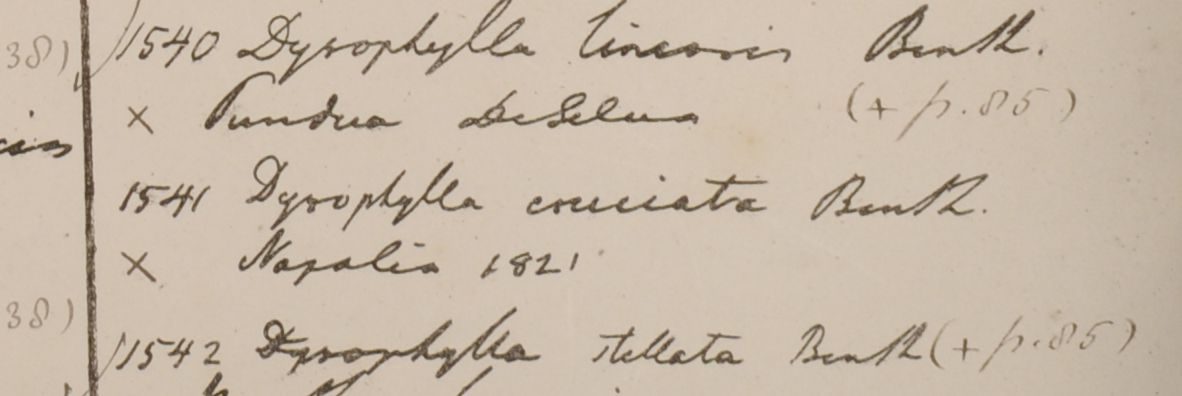 38) 1540 Dysophylla linearis Benth.
× Pundua DeSilva (+ p. 85)
1541 Dysophylla cruciata Benth.
× Napalia 1821
38) 1542 Dysophylla stellata Benth (+ p. 85)